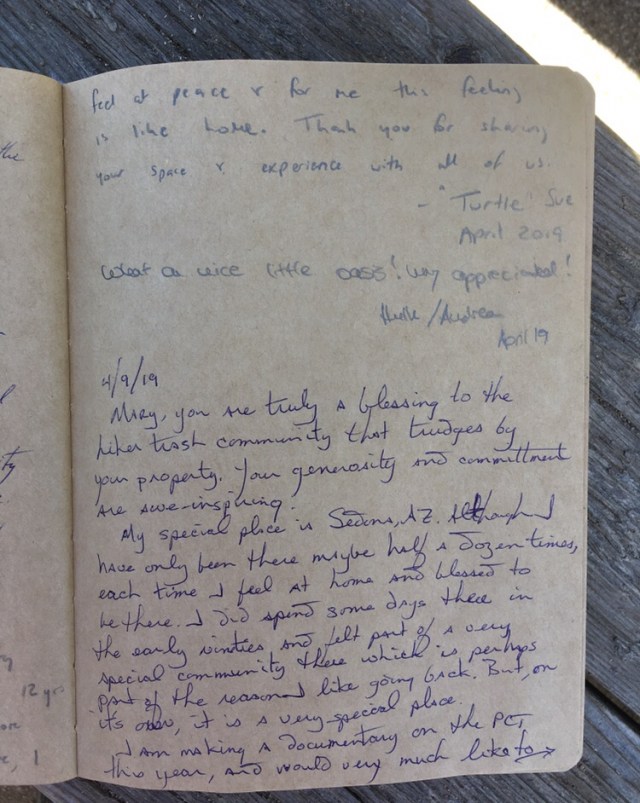 the
ty
12 yrs
, I
feel at peace & for me this feeling
is like home. Thank you for sharing
your space & experience with all of us.
- "Turtle" Sue
April 2019
What a nice little oasis! Very appreciated!
/Audrea
April 19
4/9/19
Mary, you are truly a blessing to the
hiker trash community that trudges by
your property. Your generosity and committment
are awe-inspiring.
My special place is Sedona, AZ. Although I
have only been there maybe half a dozen times,
each time I feel at home and blessed to
be there. I did spend some days there in
the early ninties and felt part of a very
special community there which is perhaps
part of the reason I like going back. But, on
its own, it is a very special place.
I am making a documentary on the PCT
this year, and would very much like to →